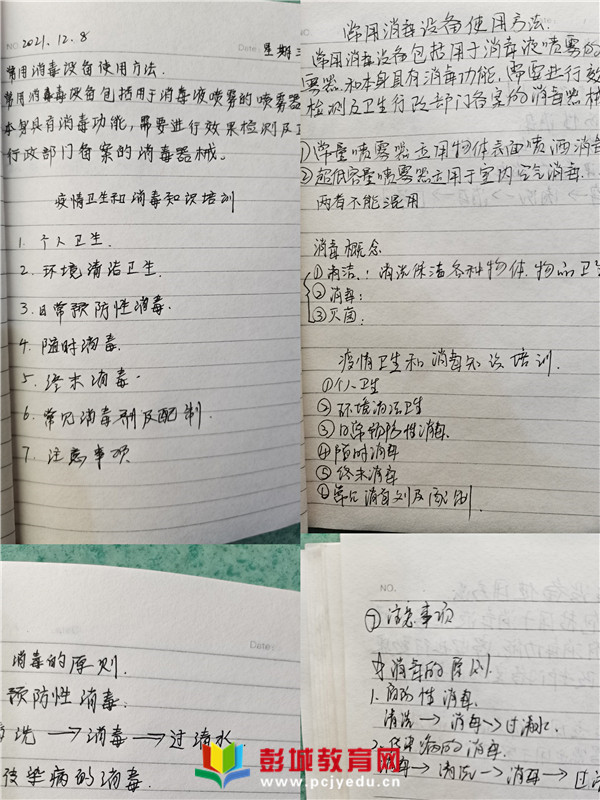 NO. 2021.12.8
Date: 星期三
常用消毒设备使用方法.
常用消毒设备包括用于消毒液喷雾的喷雾器
本身具有消毒功能，需要进行效果检测及卫
行政部门备案的消毒器械。
疫情卫生和消毒知识培训
1. 个人卫生.
2. 环境清洁卫生.
3. 日常预防性消毒.
4. 随时消毒.
5. 终末消毒.
6. 常见消毒剂及配制.
7. 注意事项
常用消毒设备使用方法.
常用消毒设备包括用于消毒液喷雾的
雾器和本身具有消毒功能,需要进行效
检测及卫生行政部门备案的消毒器械
①常量喷雾器适用物体表面喷洒消毒
②超低容量喷雾器适用于室内空气消毒.
两者不能混用
消毒概念
①清洁:清洗保洁各种物体.物品卫生
②消毒:
③灭菌:
疫情卫生和消毒知识培训.
①个人卫生
②环境清洁卫生
③日常预防性消毒.
④随时消毒
⑤终末消毒
⑥常见消毒剂及配制.
Date:
消毒的原则.
预防性消毒.
清洗→消毒→过清水
传染病的消毒.
NO.
⑦注意事项
消毒的原则.
1. 预防性消毒.
清洗→消毒→过清水.
2. 传染病的消毒.
消毒→清洗→消毒→过清
彭城教育网
www.pcjyedu.cn